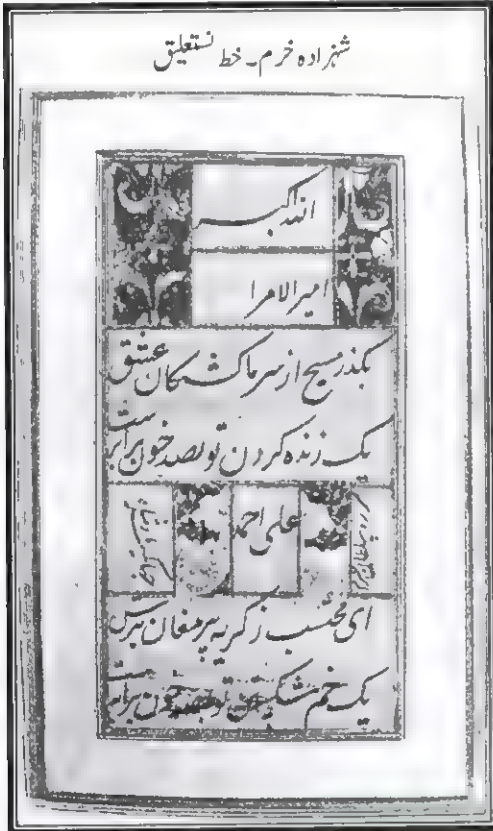 شہزادہ خرم۔ خط نستعلیق
اللہ اکبر
امیرالامرا
بگذر مسیح از سر ما کشتگان عشق
یک زنده کردن تو بصد خون برابرست
علی احمد
ای محتسب ز گریه پیر مغان بترس
یک خم شکستن تو بصد خون برابرست